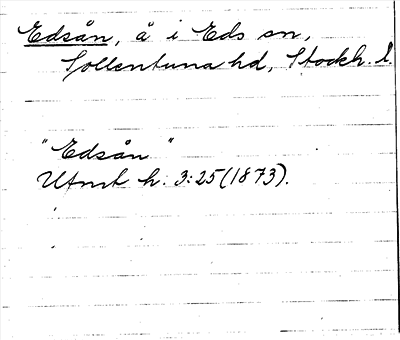 Edsån, å i Eds sn,
Sollentuna hd, Stockh. l.
"Edsån"
Utmt h. 3:25 (1873).